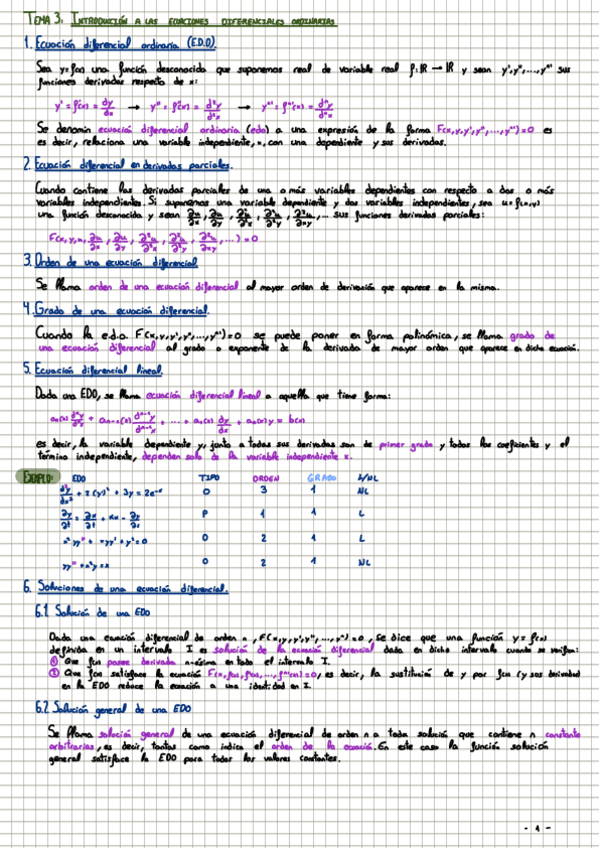 TEMA 3: INTRODUCCIÓN A LAS ECUACIONES DIFERENCIALES ORDINARIAS
1. Ecuación diferencial ordinaria (E.D.O).
Sea y=f(x) una función desconocida que suponemos real de variable real f:ℝ → ℝ y sean y',y'',...,yⁿ⁾ sus
funciones derivadas respecto de x:
y' = f'(x) = dy/dx → y'' = f''(x) = d²y/d²x → yⁿ⁾ = fⁿ⁾(x) = dⁿy/dⁿx
Se denomin ecuación diferencial ordinaria (edo) a una expresión de la forma F(x,y,y',y'',...,yⁿ⁾)=0 es
es decir, relaciona una variable independiente, x, con una dependiente y sus derivadas.
2. Ecuación diferencial en derivadas parciales.
Cuando contiene las derivadas parciales de una o más variables dependientes con respecto a dos o más
variables independientes. Si suponemos una variable dependiente y dos variables independientes, sea u=f(x,y)
una función desconocida y sean ∂u/∂x, ∂u/∂y, ∂²u/∂²x, ∂²u/∂²y, ∂²u/∂xy, ... sus funciones derivadas parciales:
F(x,y,u,∂u/∂x, ∂u/∂y, ∂²u/∂²x, ∂²u/∂²y, ∂²u/∂xy, ...) = 0
3. Orden de una ecuación diferencial
Se llama orden de una ecuación diferencial al mayor orden de derivación que aparece en la misma.
4. Grado de una ecuación diferencial.
Cuando la e.d.o F(x,y,y',y'',...,yⁿ⁾)=0 se puede poner en forma polinómica, se llama grado de
una ecuación diferencial al grado o exponente de la derivada de mayor orden que aparece en dicha ecuación.
5. Ecuación diferencial lineal.
Dada una EDO, se llama ecuación diferencial lineal a aquella que tiene forma:
aₙ(x) dⁿy/dⁿx + aₙ₋₁(x) dⁿ⁻¹y/dⁿ⁻¹x + ... + a₁(x) dy/dx + a₀(x)y = b(x)
es decir, la variable dependiente y, junto a todas sus derivadas son de primer grado y todos los coeficientes y el
término independiente, dependen solo de la variable independiente x.
EJEMPLO: EDO TIPO ORDEN GRADO L/NL
+ 2(y')² + 3y = 2e⁻ˣ O 3 1 NL
P 1 1 L
x²yy'' + xyy' + y² = 0 O 2 1 L
yy'' + x²y = x O 2 1 NL
6. Soluciones de una ecuación diferencial.
6.1 Solución de una EDO
Dada una ecuación diferencial de orden n, F(x,y,y',y'',...,yⁿ⁾)=0, se dice que una función y=f(x)
definida en un intervalo I es solución de la ecuación diferencial dada en dicho intervalo cuando se verifica:
① Que f(x) posee derivada n-ésima en todo el intervalo I.
② Que f(x) satisface la ecuación F(x,f(x),f'(x),...,fⁿ⁾(x))=0, es decir, la sustitución de y por f(x) (y sus derivadas)
en la EDO reduce la ecuación a una identidad en I.
6.2 Solución general de una EDO
Se llama solución general de una ecuación diferencial de orden n a toda solución que contiene n constante
arbitrarias, es decir, tantas como indica el orden de la ecuación. En este caso la función solución
general satisface la EDO para todos los valores constantes.
- 1 -